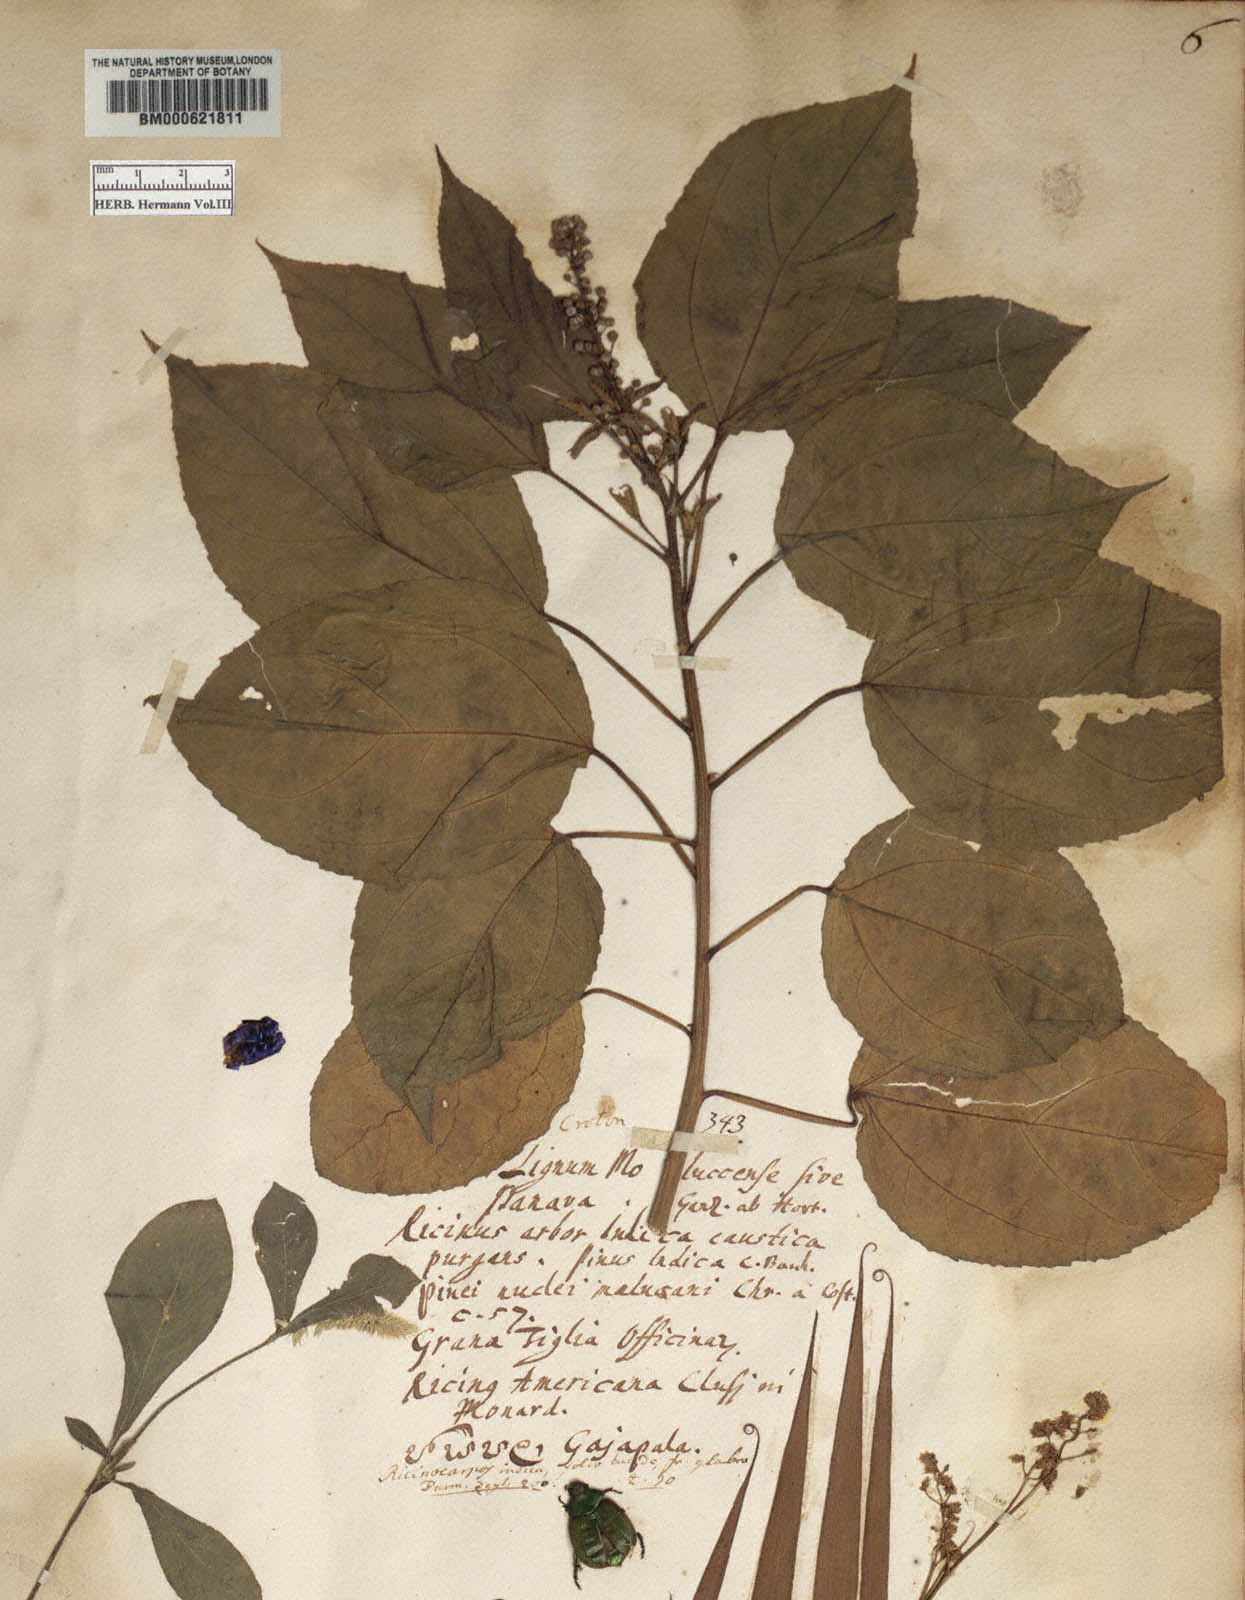 6
THE NATURAL HISTORY MUSEUM, LONDON
DEPARTMENT OF BOTANY
BM000621811
mm 1 2 3
HERB. Hermann Vol.III
Croton 343
Lignum Moluccense sive
Panava. Garz. ab Hort.
Ricinus arbor Indica caustica
purgans. Pinus Indica C. Bauh.
Pinei nuclei malucani Chr. à Cost.
c. 57.
Grana Tiglia Officinar.
Ricing Americana Clusj in
Monard.
Gajapala.
Ricinocarpos indica, folio fr. glabro
Burm. Zeyl. 200. t. 90